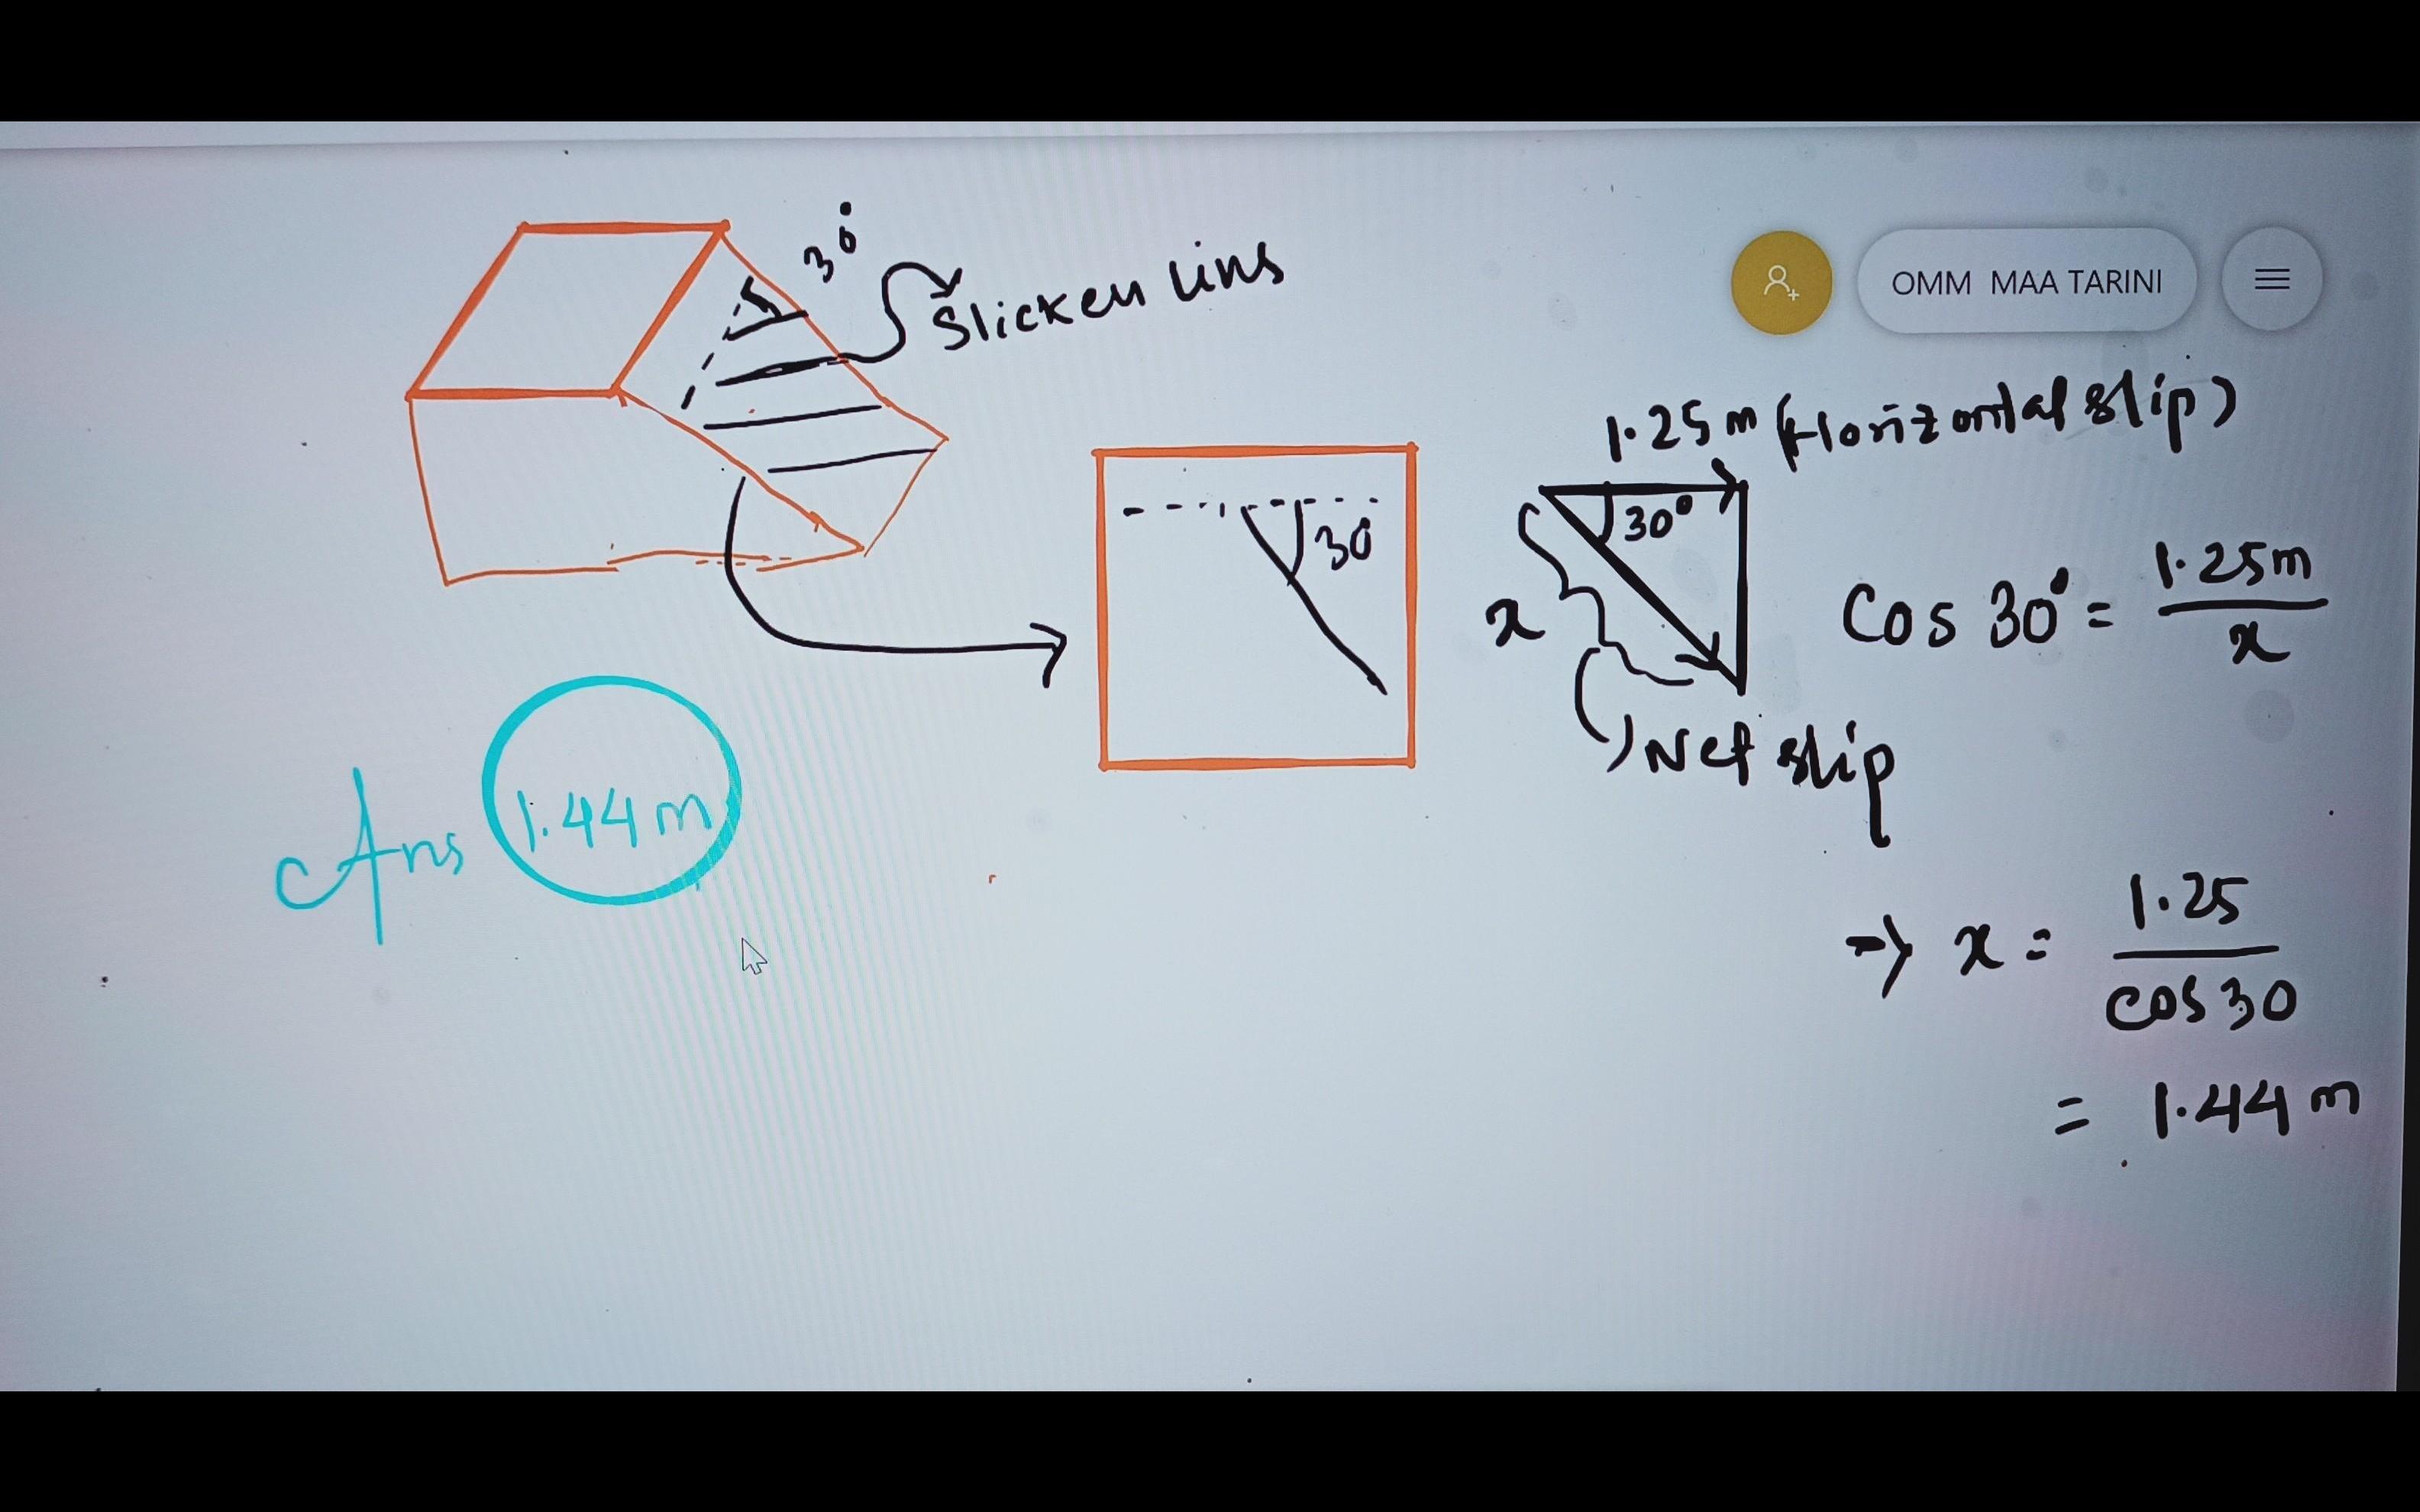 30°
Slicken lins
OMM MAA TARINI
1.25 m (Horizontal slip)
30
30°
x
Cos 30° = 1.25m / x
Net slip
Ans 1.44 m
→ x = 1.25 / cos 30
= 1.44 m